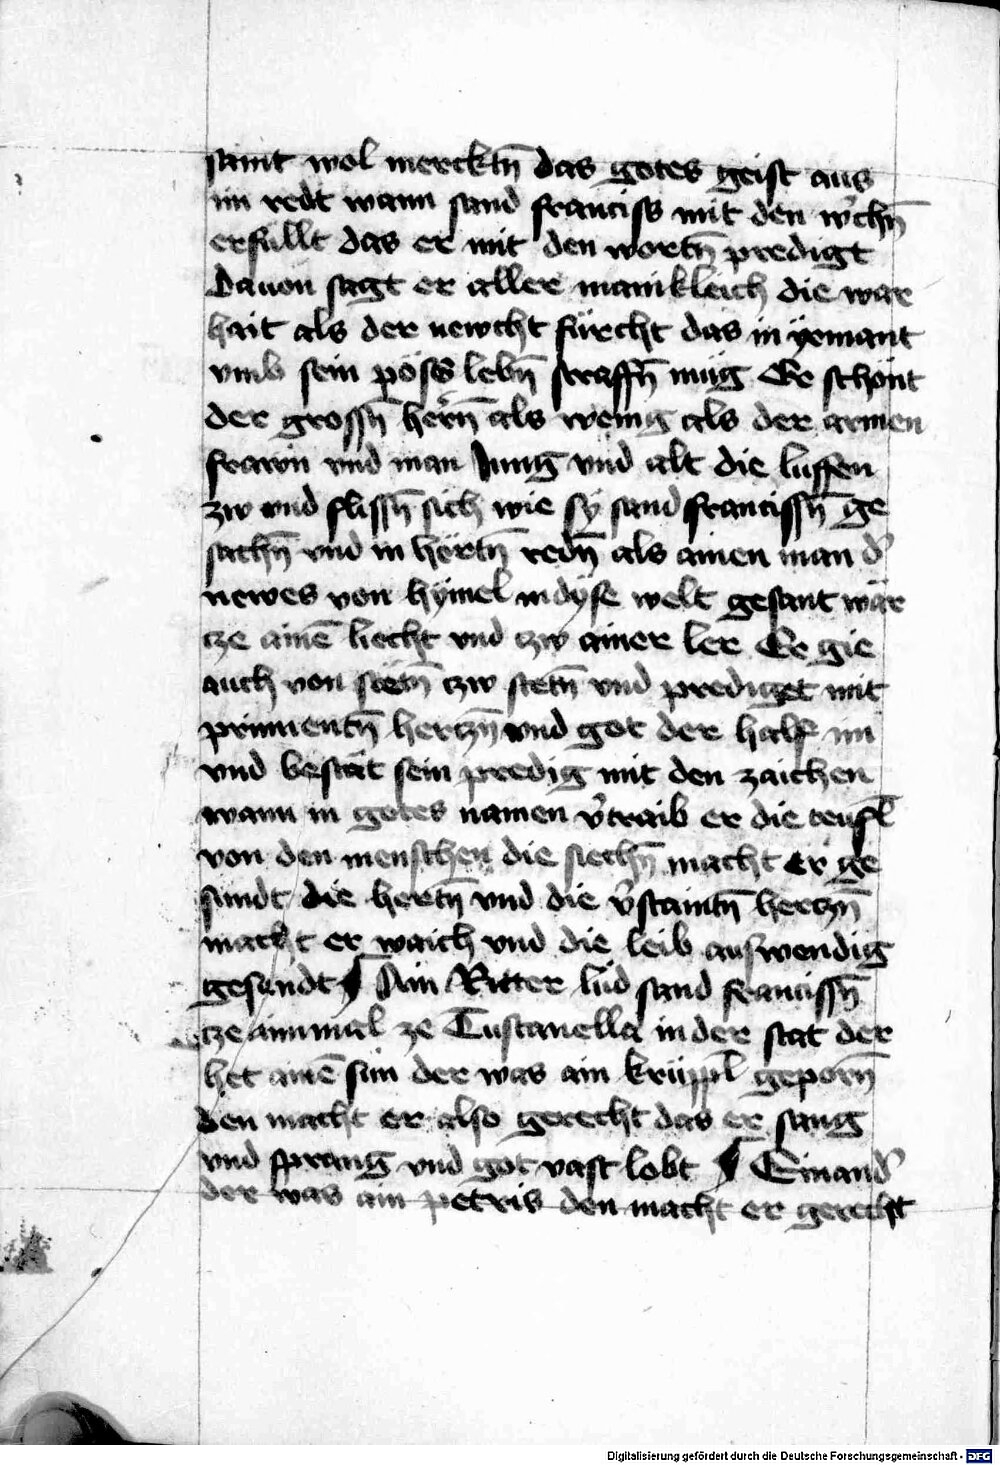 samt wol mercktn̄ das gotes geist aus
im redt wann sand franciss mit den w̉chn̄
erfullt das er mit den wortn̄ predigt
Dauon sagt er aller manikleich die war
hait als der newcht fürcht das in yemant
vmb sein pöss lebn̄ straffn̄ müg Er schönt
der grossn̄ hern̄ als wenig als der armen
frawn vnd man Jung vnd alt die luffen
zw vnd flissn̄ sich wie sy sand francissn̄ ge
sachn̄ vnd in hörtn̄ redn̄ als ainen man d̉
newes von hymel in dyse welt gesant wär
cze ainē liecht vnd czw ainer ler Er gie
auch von stetn̄ czw stetn̄ vnd prediget mit
prinnentn̄ herczn̄ vnd got der half im
vnd bestät sein predig mit den zaichen
wann in gotes namen v̉traib er die teufl̄
von den menschen die siechn̄ macht er ge
sundt die hertn̄ vnd die v̉staintn̄ herczn̄
macht er waich vnd die leib auswendig
gesundt ¶ Ain Ritter lud sand francissn̄
cze ainmal ze Tustanella in der stat der
het ainē sun der was ain krüppl̄ geporn̄
den macht er also gerecht das er sang
vnd sprang vnd got vast lobt ¶ Ein and̉
der was ain petris den macht er gerecht
Digitalisierung gefördert durch die Deutsche Forschungsgemeinschaft - DFG